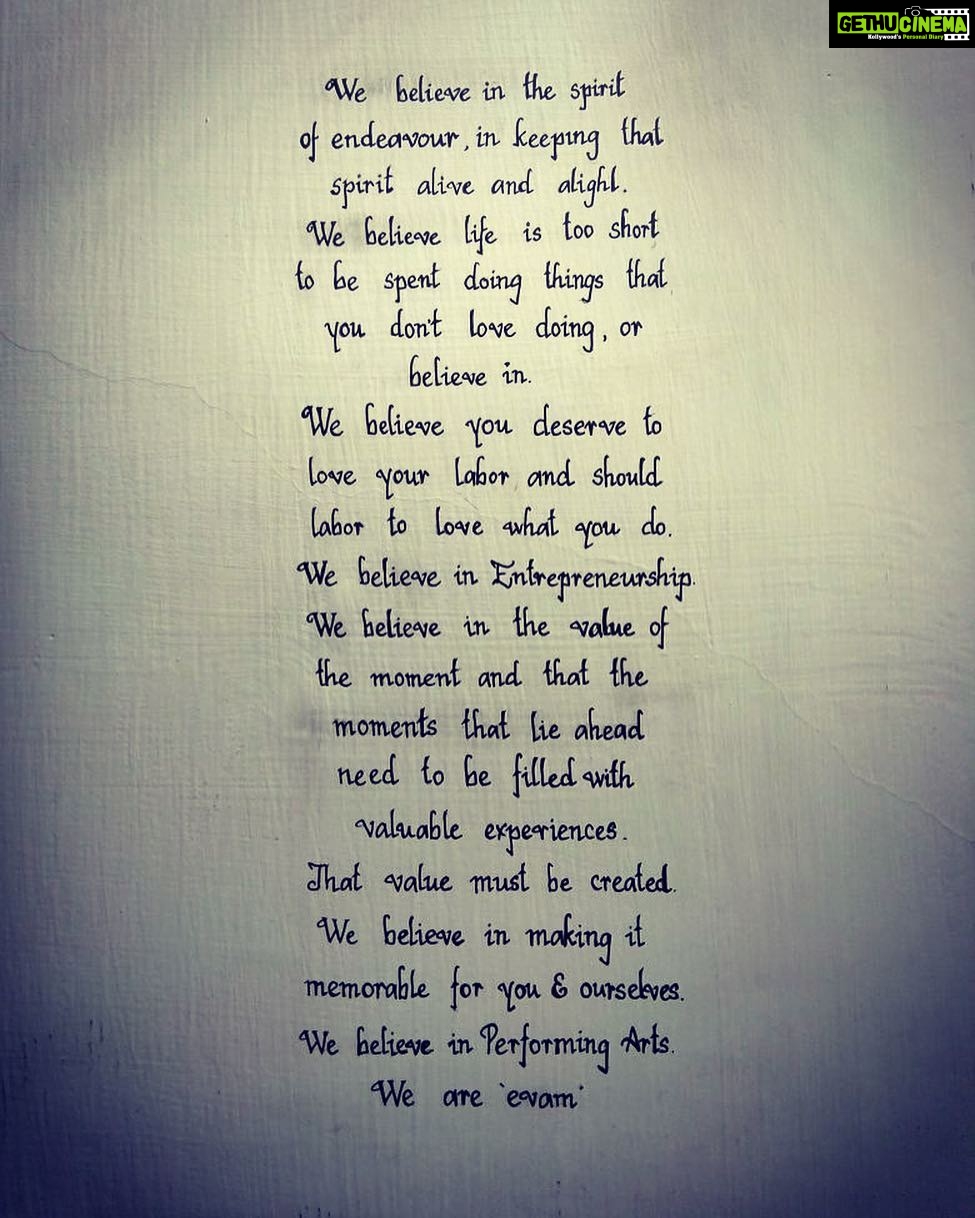 GETHU CINEMA
Kollywood's Personal Diary
We believe in the spirit
of endeavour, in keeping that
spirit alive and alight.
We believe life is too short
to be spent doing things that
you don't love doing, or
believe in.
We believe you deserve to
love your labor and should
labor to love what you do.
We believe in Entrepreneurship.
We believe in the value of
the moment and that the
moments that lie ahead
need to be filled with
valuable experiences.
That value must be created.
We believe in making it
memorable for you & ourselves.
We believe in Performing Arts.
We are 'evam'